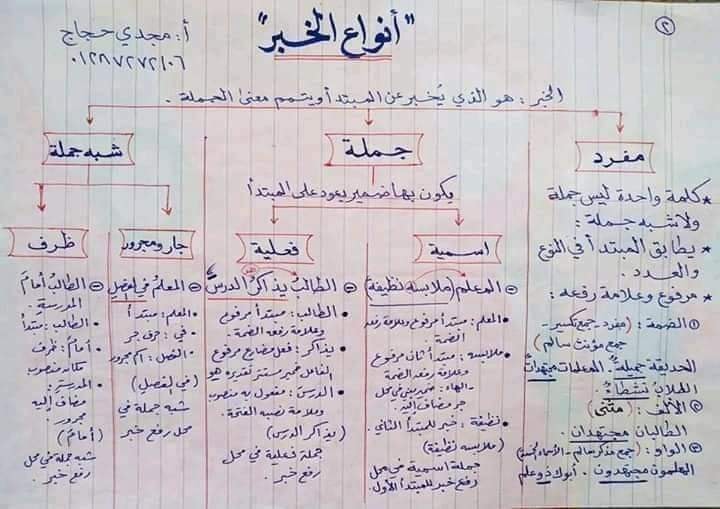 ٢
"أنواع الخبر"
أ: مجدي حجاج
٠١٢٨٧٢٧٢١٠٦
الخبر : هو الذي يُخبر عن المبتدأ ويتمم معنى الجملة .
مفرد
★ كلمة واحدة ليس جملة
ولا شبه جملة :
★ يطابق المبتدأ في النوع
والعدد .
★ مرفوع وعلامة رفعه :
① الضمة : (مفرد - جمع تكسير -
جمع مؤنث سالم)
الحديقة جميلةٌ . المعلمات مجتهداتٌ
الطلابُ نشطاءٌ .
② الألف : (مثنى)
الطالبان مجتهدان .
③ الواو : (جمع مذكر سالم - الأسماء الخمسة)
المعلمون مجتهدون . أبوك ذو علم
جملة
يكون بها ضمير يعود على المبتدأ
اسمية
المعلم (ملابسه نظيفة)
• المعلم : مبتدأ مرفوع وعلامة رفعه
الضمة
• ملابسه : مبتدأ ثان مرفوع
وعلامة رفعه الضمة
- الهاء : ضمير مبني في محل
جر مضاف إليه .
• نظيفة : خبر للمبتدأ الثاني .
(ملابسه نظيفة)
جملة اسمية في محل
رفع خبر للمبتدأ الأول .
فعلية
الطالبُ يذاكرُ الدرسَ
• الطالب : مبتدأ مرفوع
وعلامة رفعه الضمة .
• يذاكر : فعل مضارع مرفوع
الفاعل ضمير مستتر تقديره هو
• الدرسَ : مفعول به منصوب
وعلامة نصبه الفتحة .
(يذاكر الدرس)
جملة فعلية في محل
رفع خبر .
شبه جملة
جار ومجرور
المعلمُ في الفصلِ
• المعلم : مبتدأ
• في : حرف جر
• الفصل : اسم مجرور
(في الفصل)
شبه جملة في
محل رفع خبر
ظرف
الطالبُ أمامَ
المدرسةِ .
• الطالب : مبتدأ
• أمامَ : ظرف
مكان منصوب
• المدرسة :
مضاف إليه
مجرور .
(أمام)
شبه جملة في محل
رفع خبر .